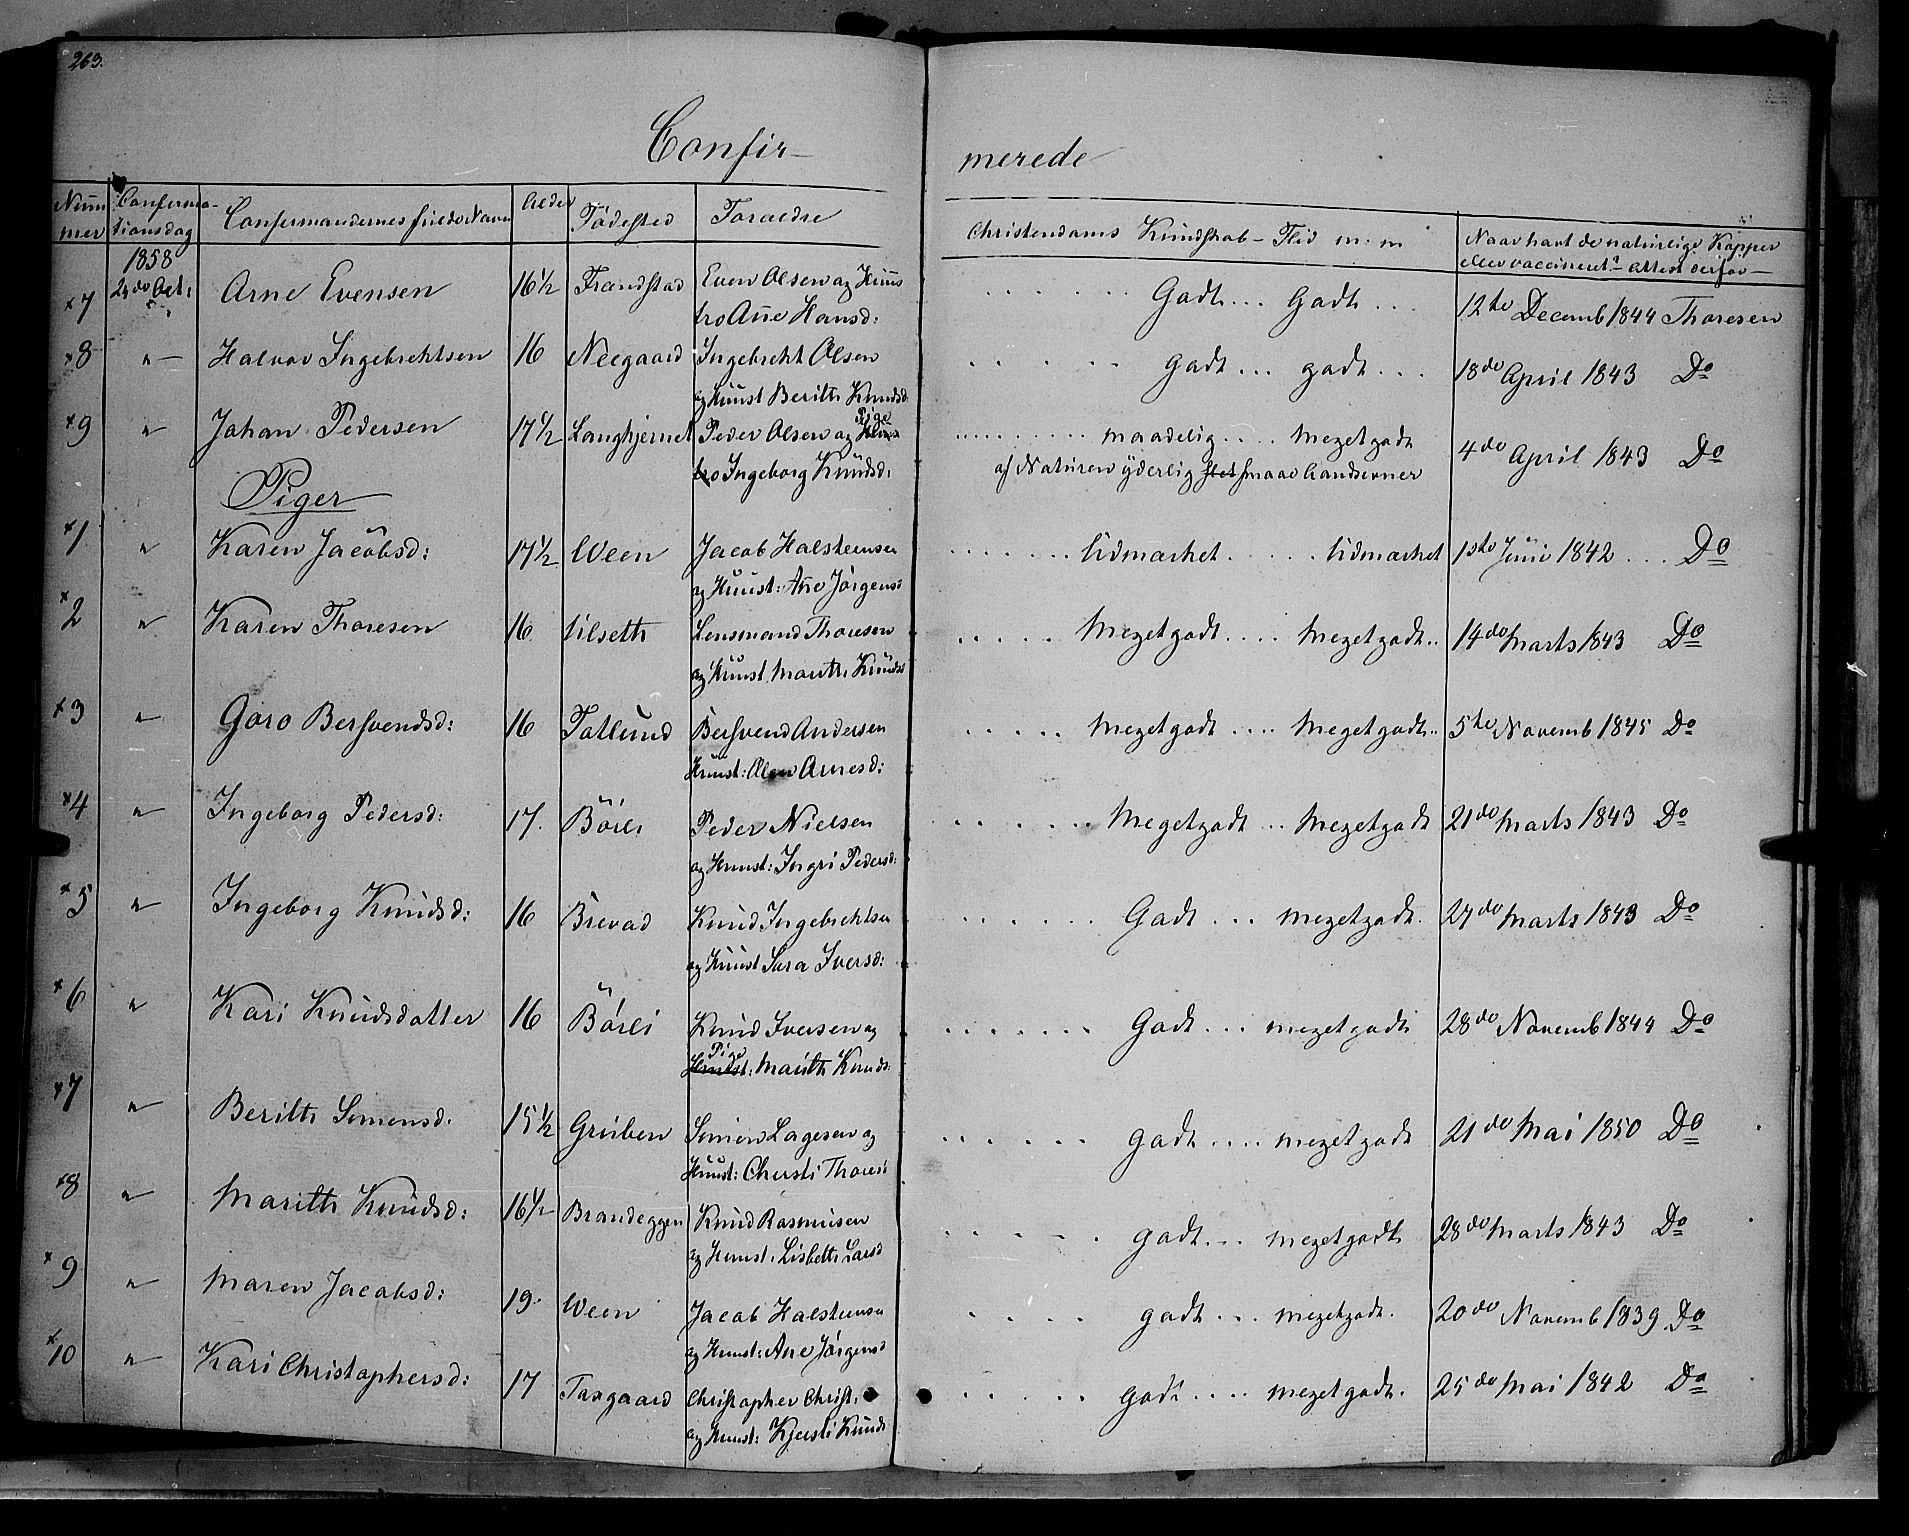 263.
Confir-
merede
Num
mer
Confirma-
tionsdag
Confirmandernes fulde Navn
Alder
Födested
Foraeldre
Christendoms Kundskab - Flid m: m
Naar havt de naturlige Kopper
eller vaccineret? Attest derfor -
1858
*7 24do Oct: Arne Evensen 16½ Frandstad Even Olsen og Huus
tro Ane Hansd: Godt ... Godt ... 12te Decemb 1844 Thoresen
*8 " Halvor Ingebrehtsen 16 Neegaard Ingebreht Olsen
og Huust Berith Knudsd: godt ... godt ... 18do April 1843 Do
*9 " Johan Pedersen 17½ Langhjernet Peder Olsen og Pige
tro Ingeborg Knudsd: maadelig .... Megetgodt 4do April 1843 Do
af Naturen yderlig smaae Aandsevner
Piger
*1 " Karen Jacobsd: 17½ Ween Jacob Halsteensen
og Huust: Ane Jörgensd Udmærket ..... Udmærket 1ste Juni 1842 ... Do
*2 " Karen Thoresen 16 Ulseth Lensmand Thoresen
og Huust Marith Knudsd Megetgodt .... Megetgodt .. 14do Marts 1843 Do
*3 " Goro Bersvendsd: 16 Tatlund Bersvend Andersen
Huust: Olea Arnesd: Megetgodt .... Megetgodt .. 5te Novemb 1845 Do
*4 " Ingeborg Pedersd: 17. Börli Peder Nielsen
og Huust: Ingri Pedersd: Megetgodt ... Megetgodt 21do Marts 1843 Do
*5 " Ingeborg Knudsd: 16 Brevad Knud Ingebrehtsen
og Huust Sira Iversd: Godt ... megetgodt. 27do Marts 1843 Do
*6 " Kari Knudsdatter 16 Börli Knud Iversen og
Pige
Huust: Marith Knuds: Godt ... megetgodt 28do Novemb 1844 Do
*7 " Berith Simensd. 15½ Gruben Simen Lagesen og
Huust: Chersti Thoresd godt .... megetgodt 21do Mai 1850 Do
*8 " Marith Knudsd: 16½ Brandeggen Knud Rasmusen
og Huust. Lisbeth Larsd godt ... megetgodt 28do Marts 1843 Do
*9 " Maren Jacobsd: 19. Ween Jacob Halsteensen
og Huust: Ane Jörgensd godt ... megetgodt. 20do Novemb 1839 Do
*10 " Kari Christophersd: 17 Taxgaard Christopher Christ:
og Huust: Kjersti Knudsd godt .... megetgodt. 25do Mai 1842 Do